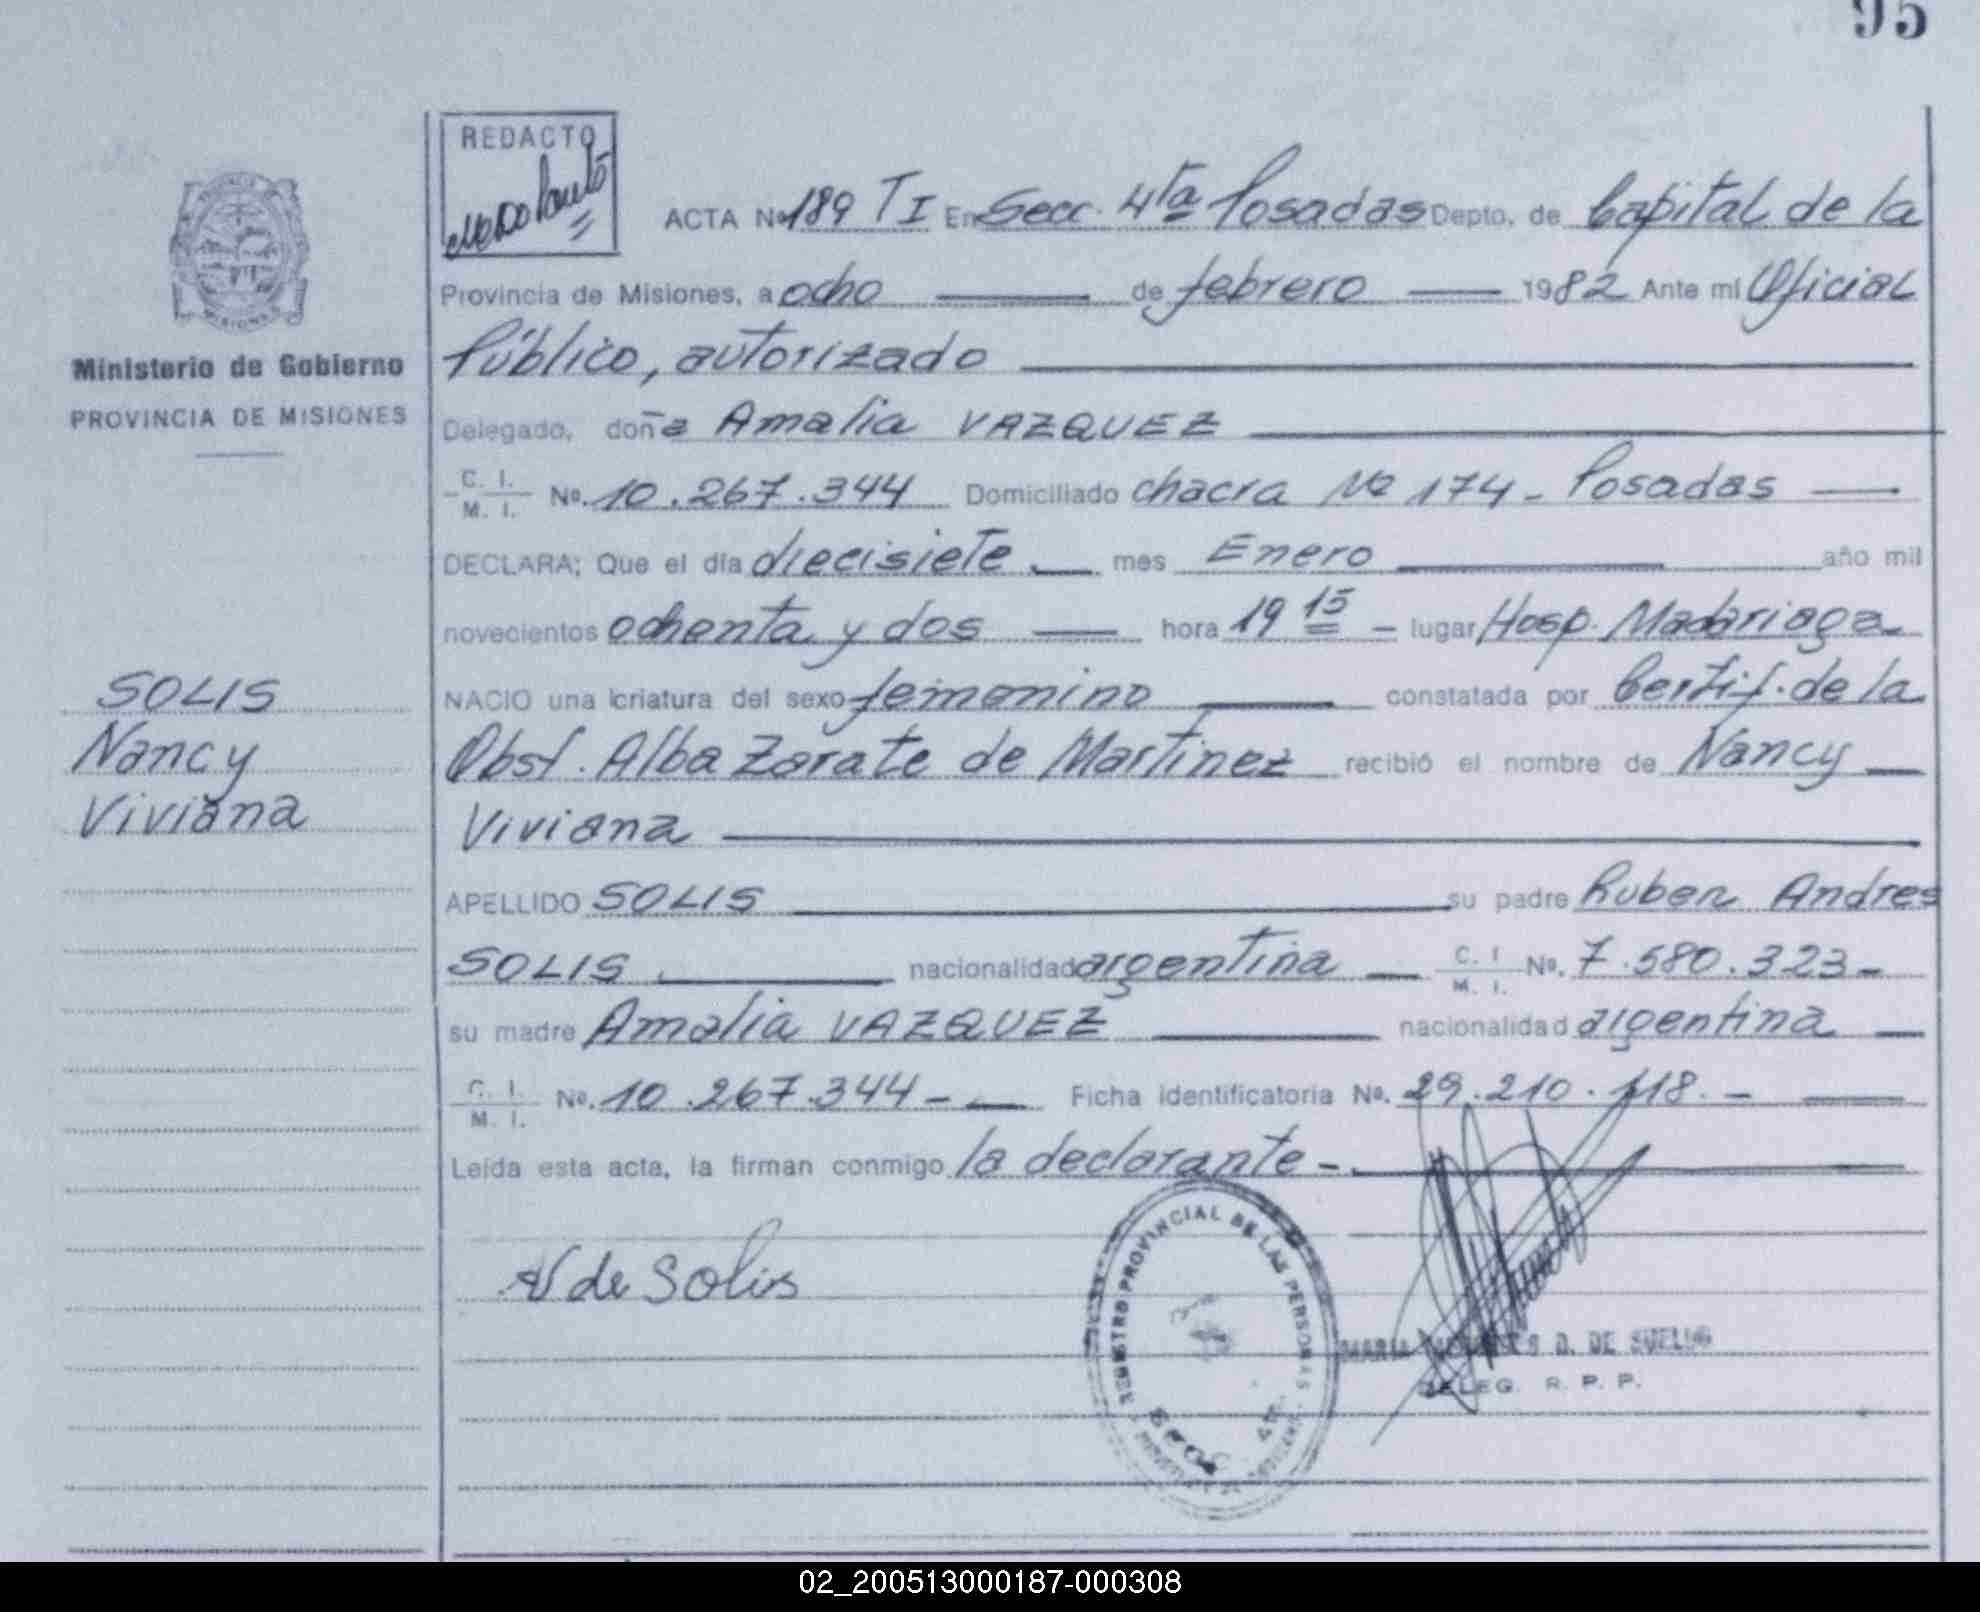 95
REDACTO
ACTA Nº 189 TI En Secc. 4ta Posadas Depto. de Capital de la
Provincia de Misiones, a ocho de febrero 1982 Ante mi Oficial
Público, autorizado
Delegado, doña Amalia VAZQUEZ
C. I.
M. I.
Nº. 10.267.344 Domiciliado chacra Nº 174 - Posadas
DECLARA; Que el día diecisiete mes Enero año mil
novecientos ochenta y dos hora 19 15 - lugar Hosp. Madariaga
NACIO una criatura del sexo femenino constatada por Certif. de la
Obst. Alba Zarate de Martinez recibió el nombre de Nancy
Viviana
APELLIDO SOLIS su padre Ruben Andres
SOLIS nacionalidad argentina C. I. M. I. Nº. 7.580.323-
su madre Amalia VAZQUEZ nacionalidad argentina
C. I.
M. I.
Nº. 10.267.344 - Ficha identificatoria Nº. 29.210.118. -
Leída esta acta, la firman conmigo la declarante -
PROVINCIA DE
MISIONES
Ministerio de Gobierno
PROVINCIA DE MISIONES
SOLIS
Nancy
Viviana
V de Solis
REGISTRO PROVINCIAL DE LAS PERSONAS
MARIA D. DE SUELDO
DELEG. R. P. P.
02_200513000187-000308